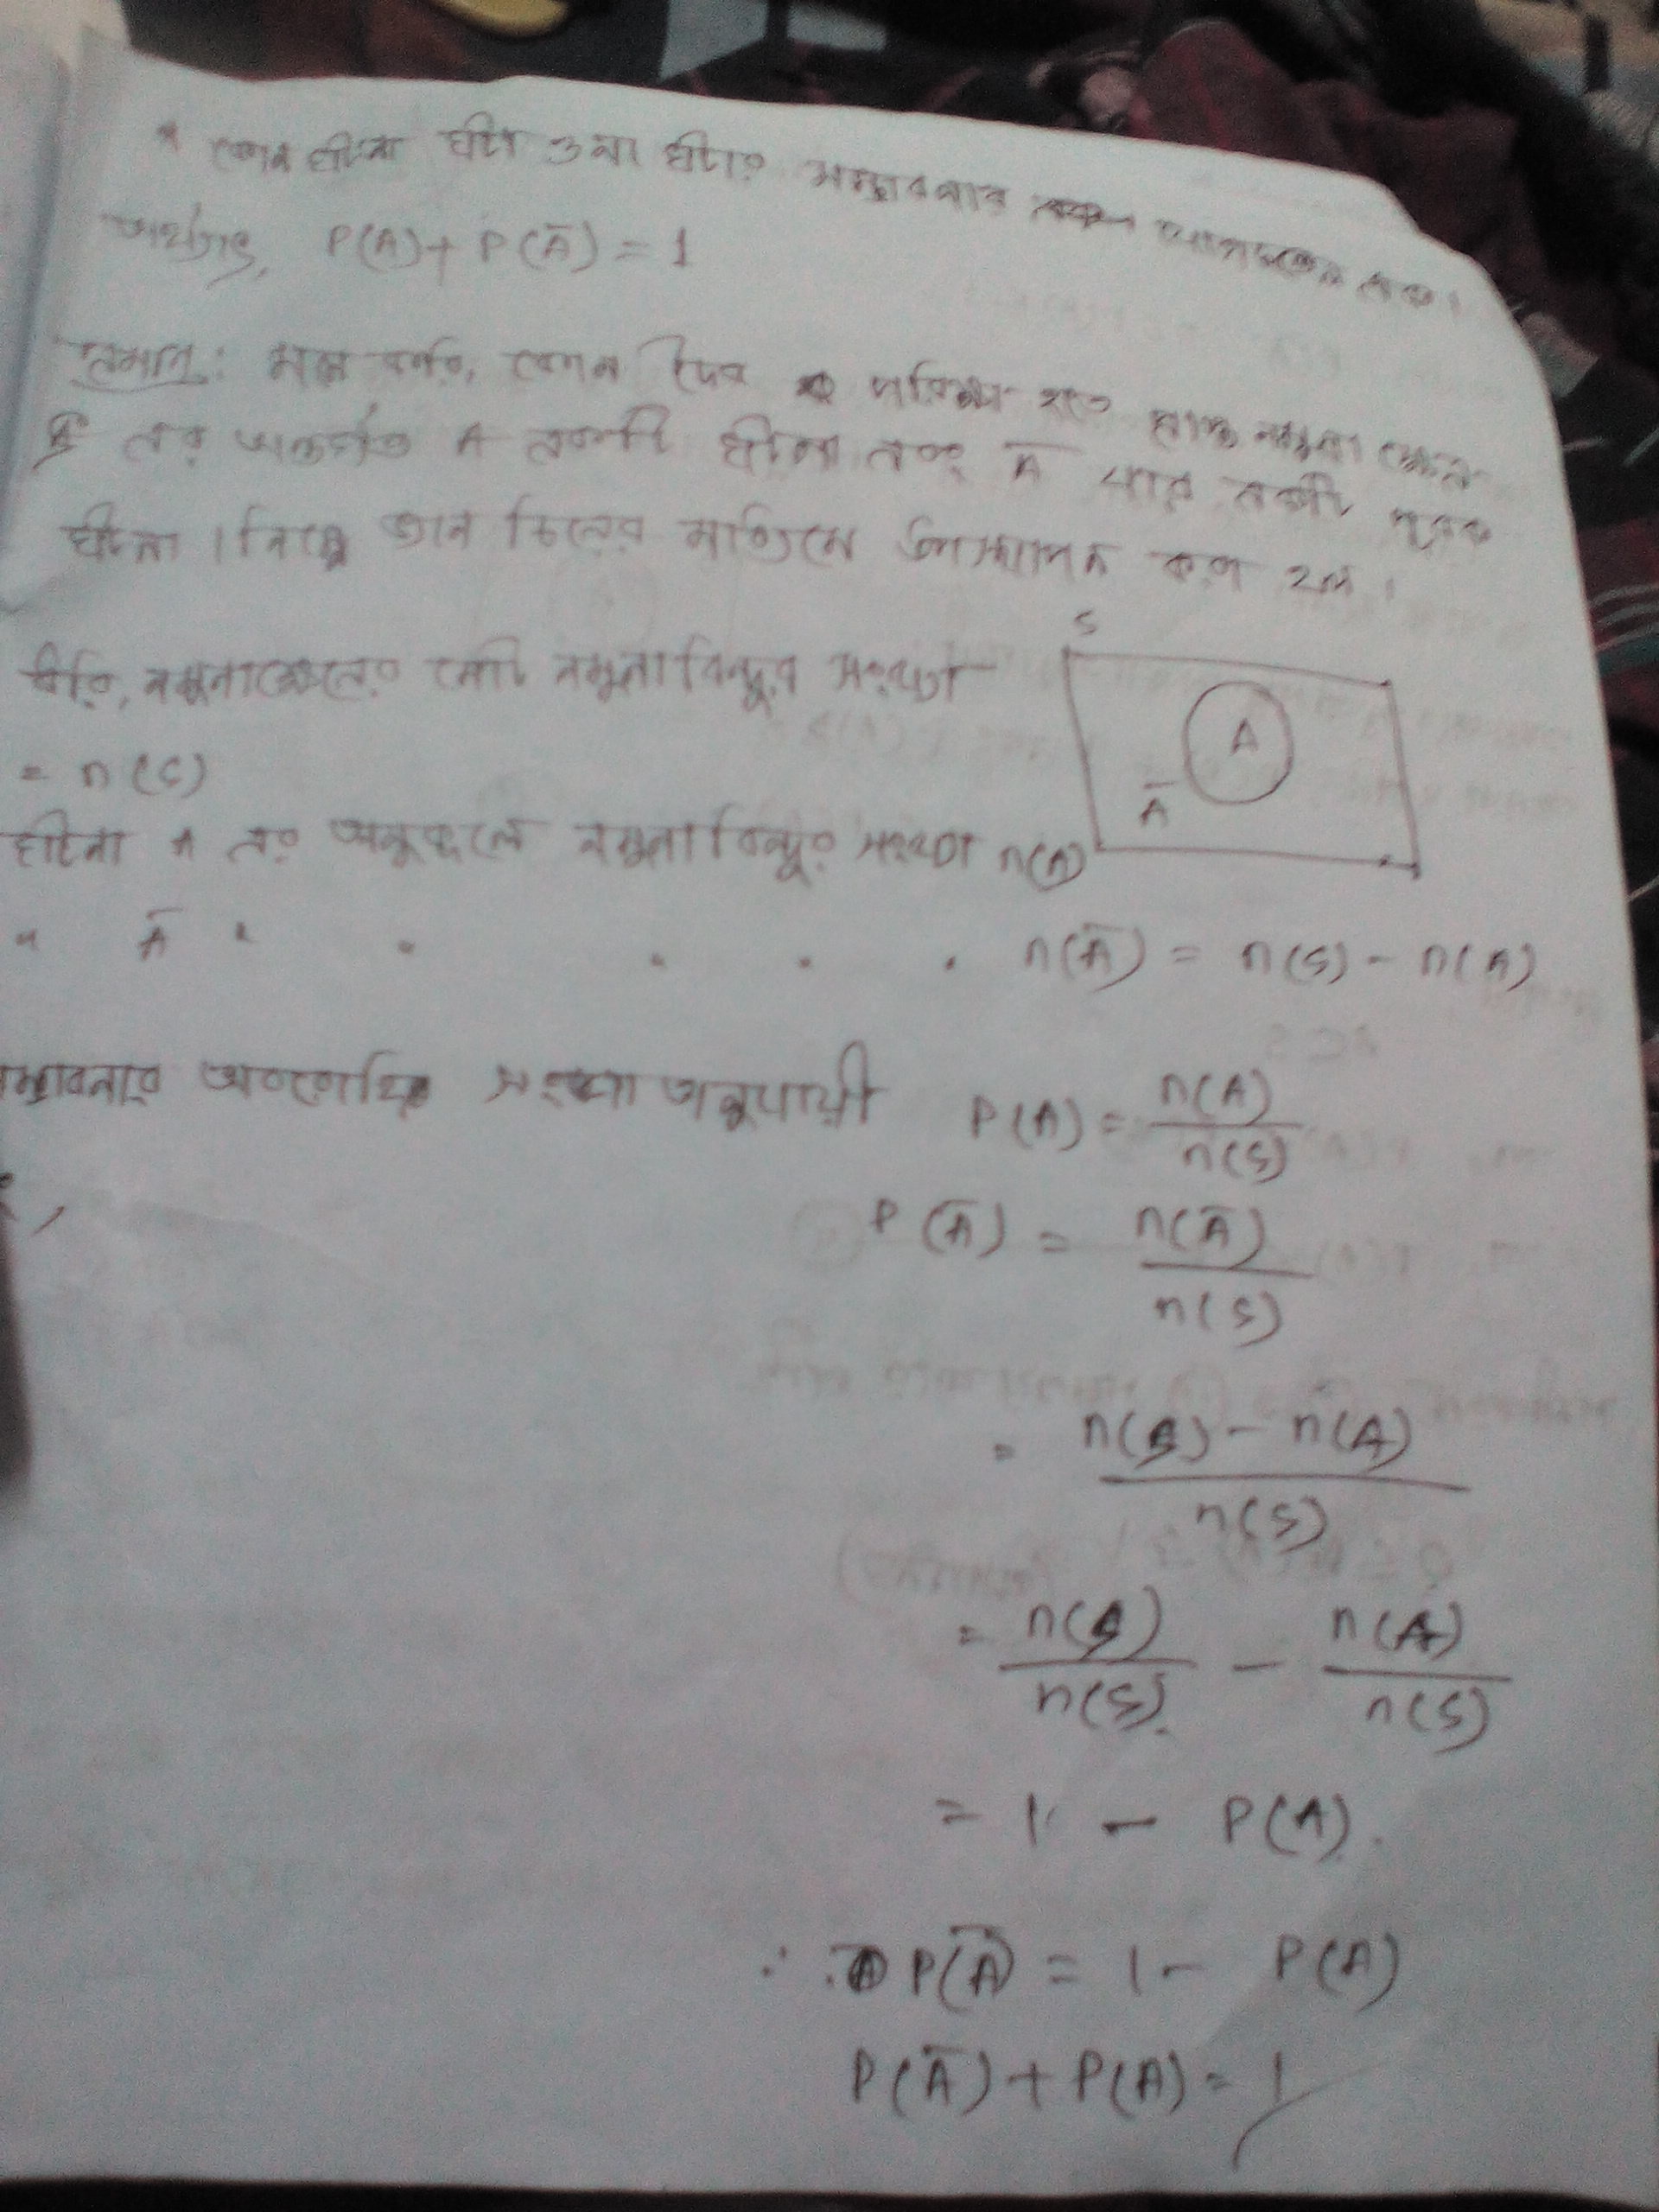 * কোন ঘটনা ঘটা ও না ঘটার সম্ভাবনার যোগফল এক।
অর্থাৎ, P(A) + P(Ā) = 1
প্রমাণ: মনে করি, কোন দৈব পরিক্ষা হতে প্রাপ্ত নমুনা ক্ষেত্র
S এর অন্তর্গত A একটি ঘটনা এবং Ā তার একটি পূরক
ঘটনা। নিম্নে ভেন চিত্রের মাধ্যমে উপস্থাপন করা হল।
S
A
Ā
ধরি, নমুনাক্ষেত্রের মোট নমুনা বিন্দুর সংখ্যা
= n(S)
ঘটনা A এর অনুকূলে নমুনা বিন্দুর সংখ্যা n(A)
" Ā " " " " " n(Ā) = n(S) - n(A)
সম্ভাবনার সংজ্ঞা অনুযায়ী P(A) = n(A)/n(S)
P(Ā) = n(Ā)/n(S)
= n(S) - n(A)/n(S)
= n(S)/n(S) - n(A)/n(S)
= 1 - P(A).
∴ P(Ā) = 1 - P(A)
P(Ā) + P(A) = 1